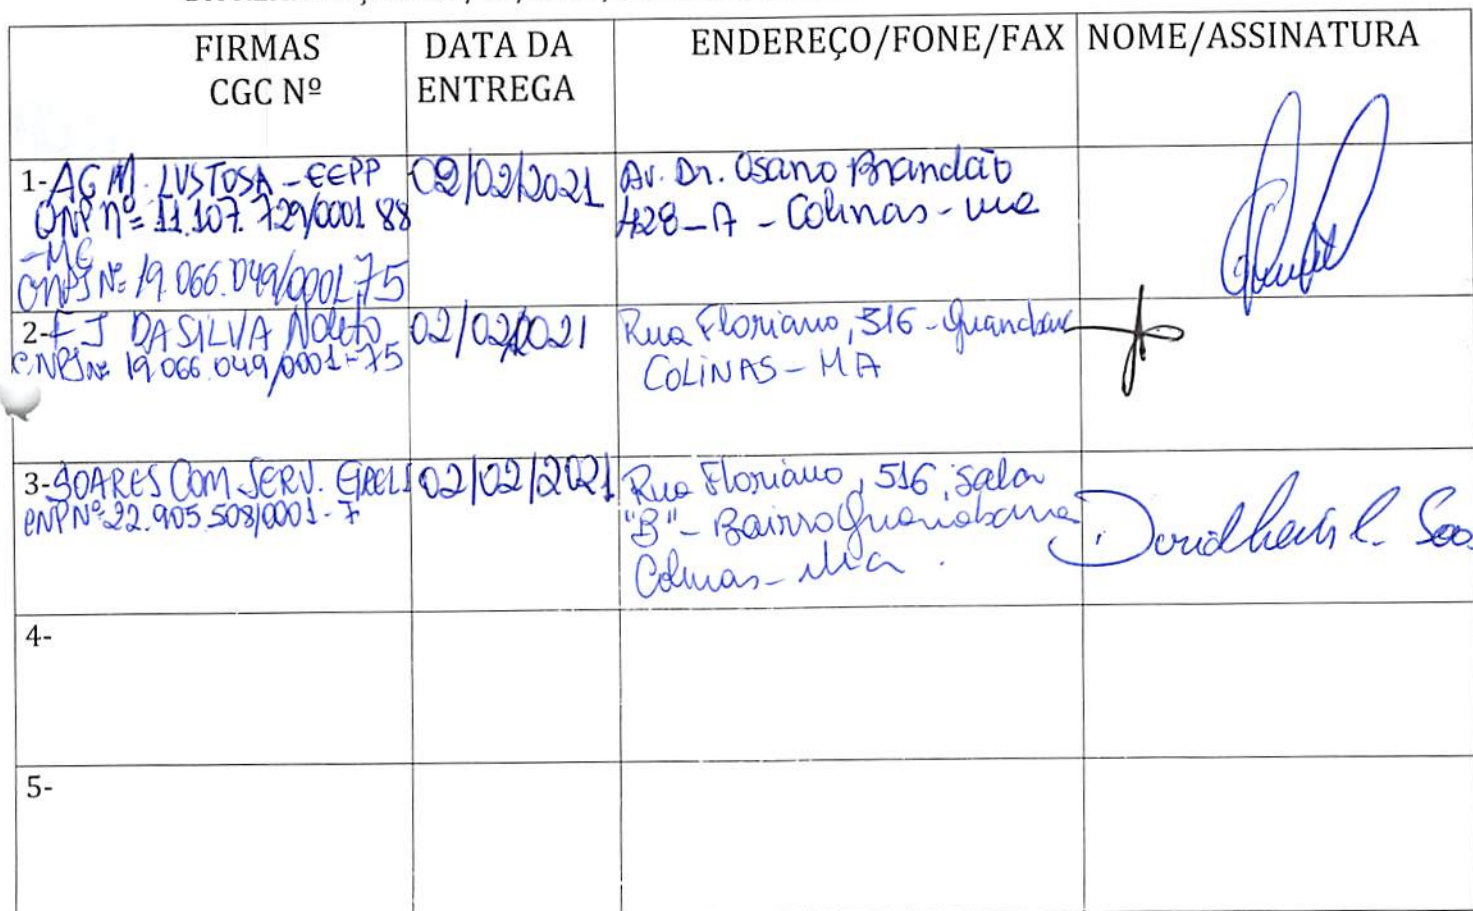 FIRMAS
CGC Nº
DATA DA
ENTREGA
ENDEREÇO/FONE/FAX
NOME/ASSINATURA
1-AG M. LUSTOSA - EEPP
CNP nº= 11.107.729/0001 88
-ME
CNPJ Nº 19.066.049/0001-75
02/02/2021
Av. Dr. Osano Brandão
428-A - Colinas - ma
2-F J DA SILVA Noleto
CNPJ Nº 19.066.049/0001-75
02/02/2021
Rua Floriano, 516 -
COLINAS - MA
3-SOARES COM SERV. EIRELI
CNP Nº 22.905.508/0001-7
02/02/2021
Rua Floriano, 516, sala
"B" - Bairro Guanabara
Colinas - Ma.
4-
5-